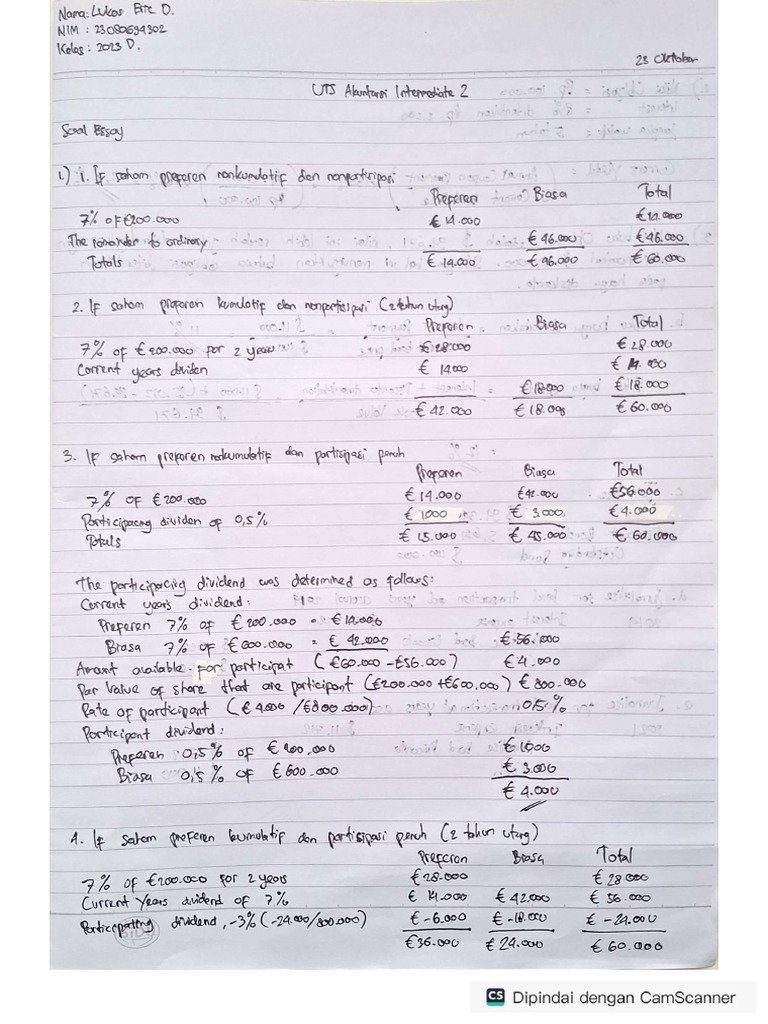 Nama: Lukas Eric D.
NIM : 23080694302
Kelas : 2023 D.
23 Oktober
UTS Akuntansi Intermediate 2
Soal Essay
1.) 1. If saham preferen nonkumulatif dan nonpartisipasi
Preferen Biasa Total
7% of €200.000 € 14.000 € 14.000
The remainder to ordinary € 46.000 € 46.000
Totals € 14.000 € 46.000 € 60.000
2. If saham preferen kumulatif dan nonpartisipasi (2 tahun utang)
Preferen Biasa Total
7% of €200.000 for 2 years €28.000 € 28.000
Current years dividen € 14000 € 14.000
€18.000 € 18.000
€ 42.000 € 18.000 € 60.000
3. If saham preferen nonkumulatif dan partisipasi penuh
Preferen Biasa Total
7% OF €200.000 € 14.000 €42.000 €56000
Participacing dividen of 0,5% € 1000 € 3000, €4.000
Totals € 15.000 € 45.000 € 60.000
The participacing dividend was determined as follows:
Current year's dividend:
Preferen 7% of €200.000 = €14.000
Biasa 7% of €600.000 = € 42.000 € 56.000
Amount available for participat (€60.000 - €56.000) €4.000
Par value of share that are participant (€200.000 + €600.000) € 800.000
Rate of participant (€ 4.000 / €800.000) 0,5%
Participant dividend:
Preferen 0,5% of € 200.000 € 1000
Biasa 0,5% of € 600.000 € 3.000
€ 4.000
4. If saham preferen kumulatif dan partisipasi penuh (2 tahun utang)
Preferen Biasa Total
7% of €200.000 for 2 years €28.000 € 28.000
Current Years dividend of 7% € 14.000 € 42.000 € 56.000
Participating dividend, -3% (-24.000/800.000) € -6.000 € -18.000 € -24.000
€36.000 € 24.000 € 60.000
CS Dipindai dengan CamScanner